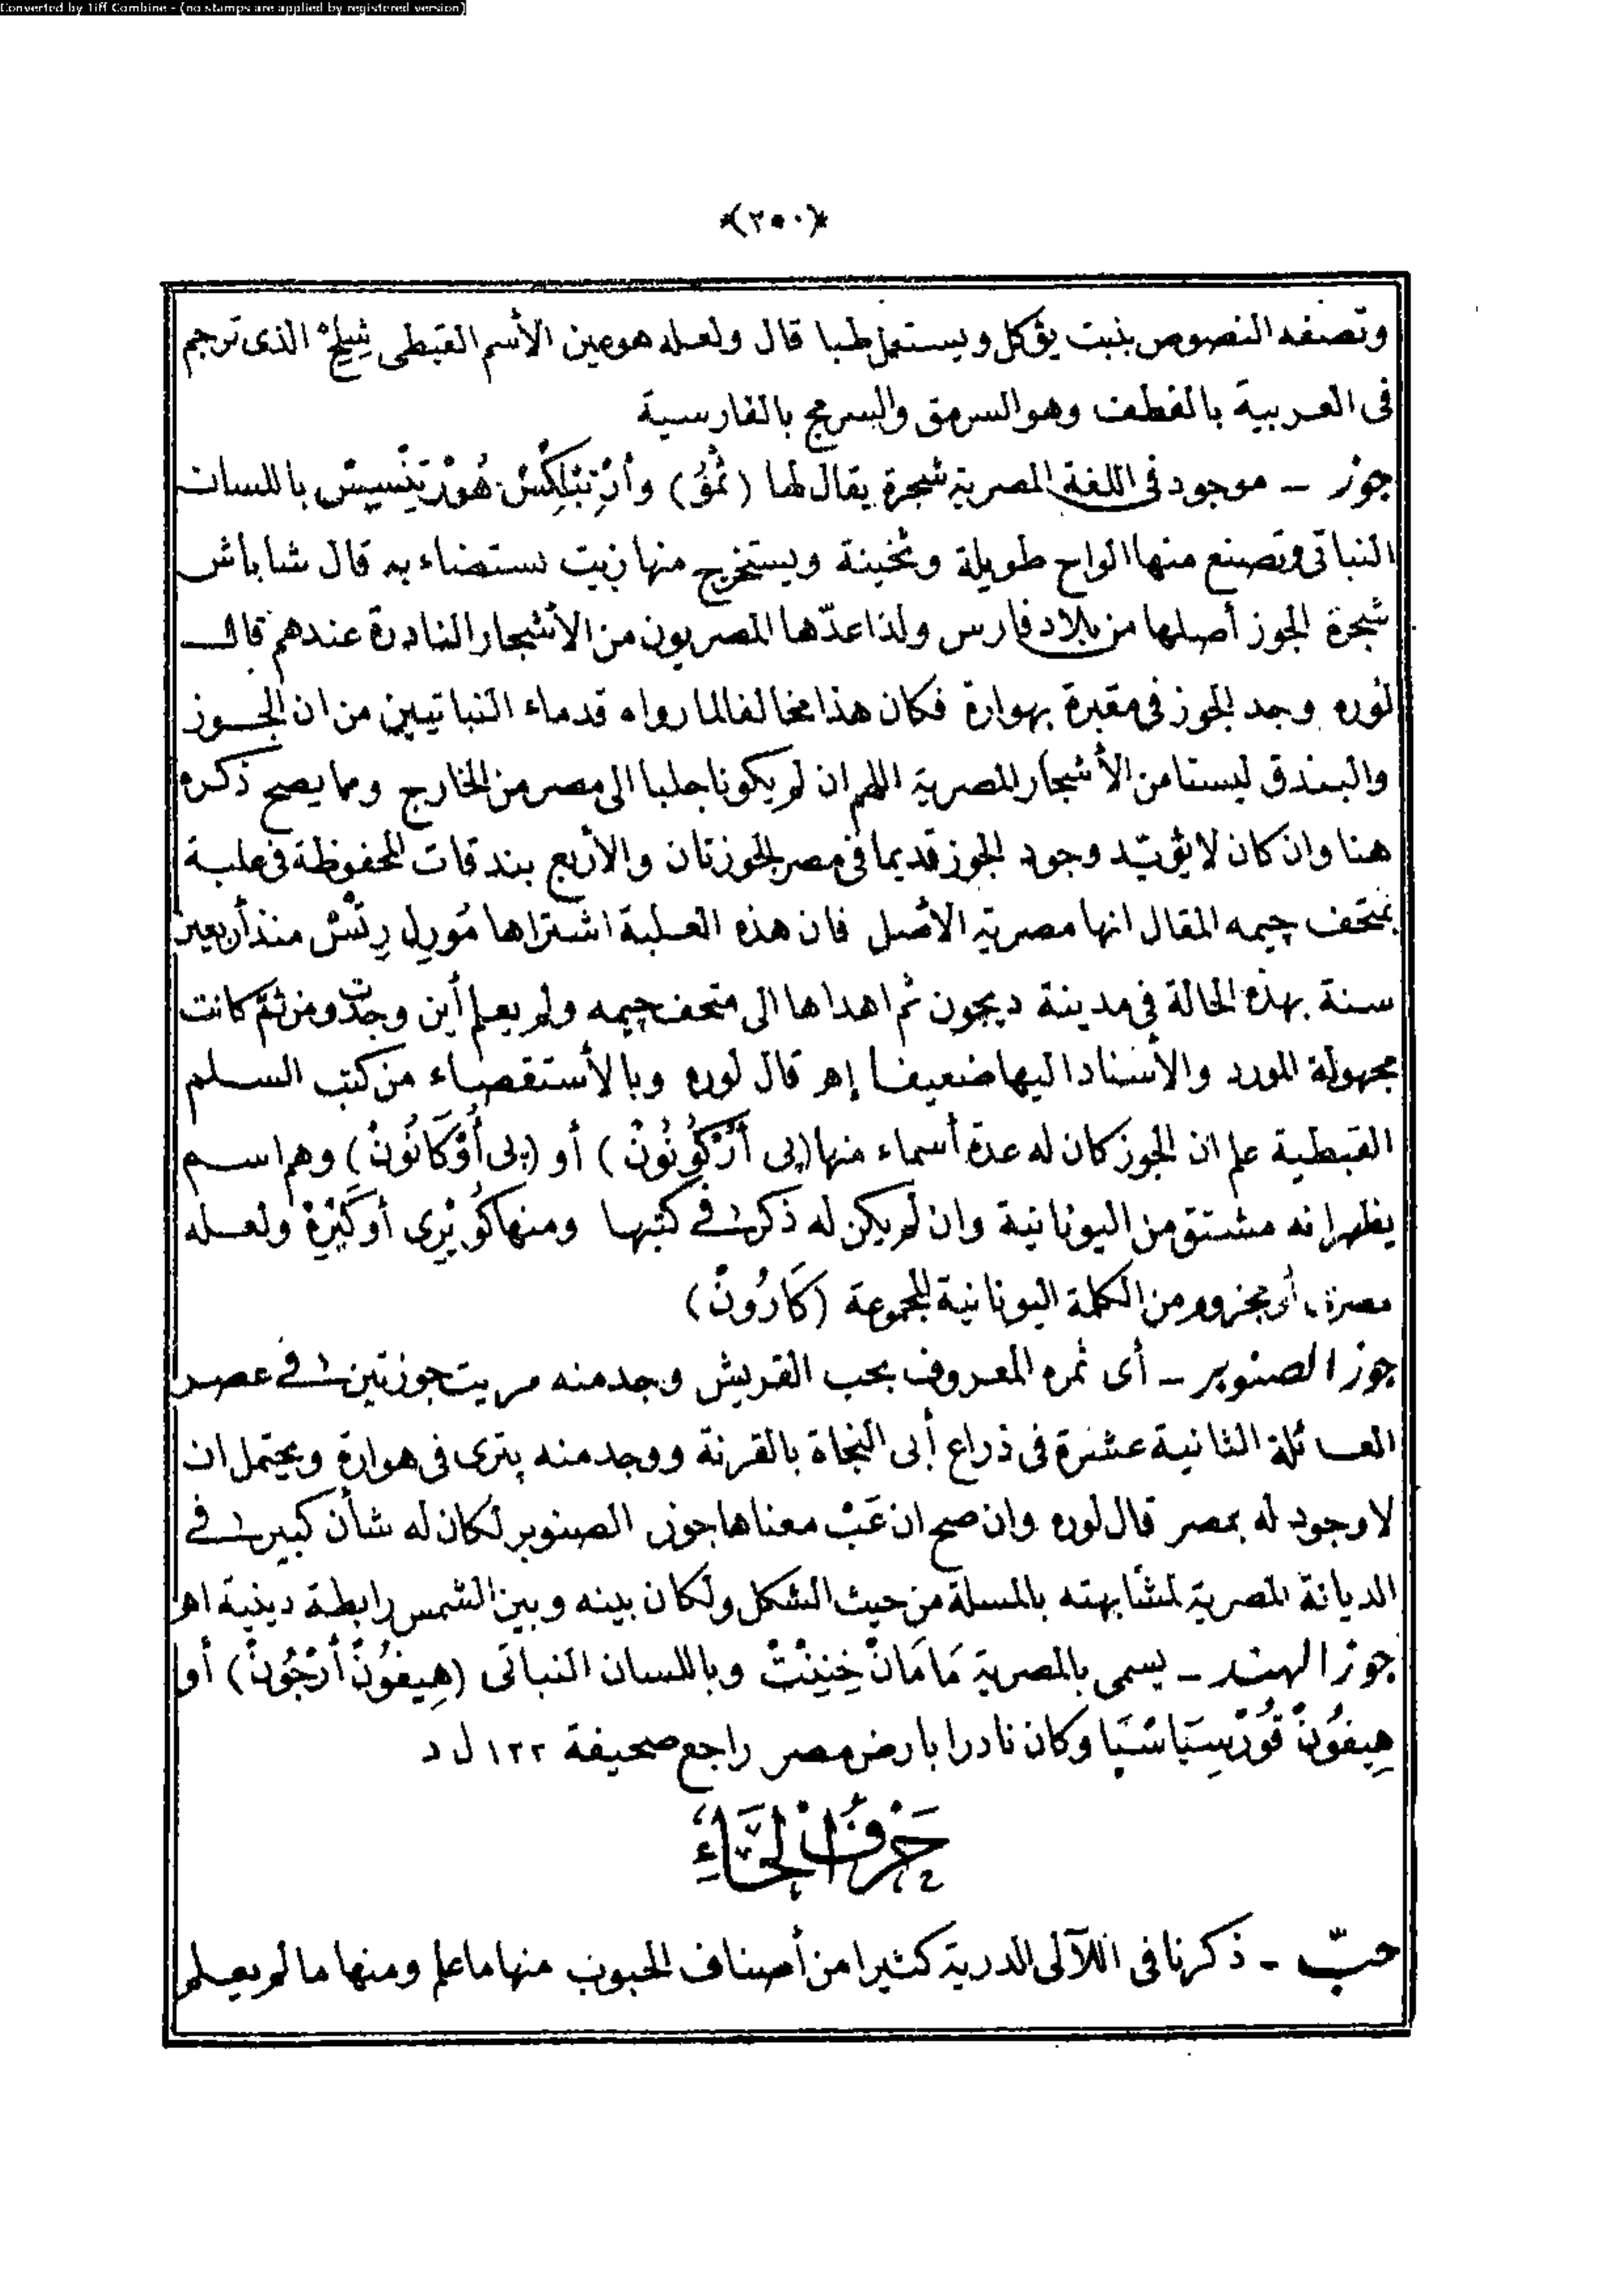 Converted by Tiff Combine - (no stamps are applied by registered version)
*(٢٥٠)*
وتصفه النصوص بنبت يؤكل ويستعمل طبا قال ولعله هو عين الأسم القبطى الذى ترجم
فى العربية بالقطف وهو السرمق والسرمج بالفارسية
جوز – موجود فى اللغة المصرية شجرة يقال لها باللسان
النباتى وتصنع منها الواح طويلة وثخينة ويستخرج منها زيت يستضاء به قال شاباش
شجرة الجوز أصلها من بلاد فارس ولذا عدّها المصريون من الأشجار النادرة عندهم قال
لوره وجد الجوز فى مقبرة بهوارة فكان هذا مخالفا لما رواه قدماء النباتيين من ان الجوز
والبندق ليستا من الأشجار المصرية اللهم ان لم يكونا جلبا الى مصر من الخارج ومما يصح ذكره
هنا وان كان لا يؤيّد وجود الجوز قديما فى مصر الجوزتان والأربع بندقات المحفوظة فى علبة
بمتحف جيمه المقال انها مصرية الأصل فان هذه العلبة اشتراها مَورِل رِتْش منذ أربعين
سنة بهذه الحالة فى مدينة ديجون ثم اهداها الى متحف جيمه ولم يعلم أين وجدت ومن ثمّ كانت
مجهولة المورد والأسناد اليها ضعيفا إهـ قال لوره وبالأستقصاء من كتب السلم
القبطية علم ان الجوز كان له عدة أسماء منها (پى أَرْكُونُونْ) أو (پى أُوْكَانُونْ) وهما سم
يظهر انه مشتق من اليونانية وان لم يكن له ذكر فى كتبها ومنها كُويْرِى أو كَيْرِهْ ولعله
من الكلمة اليونانية المجموعة (كَارُونْ)
جوز الصنوبر – أى ثمره المعروف بحب القريش وجد منه مريت جوزتين فى عصر
العائلة الثانية عشرة فى ذراع أبى النجاة بالقرنة ووجد منه پترى فى هوارة ويحتمل ان
لا وجود له بمصر قال لوره وان صح ان عَبْ معناها جوز الصنوبر لكان له شأن كبير فى
الديانة المصرية لمشابهته بالمسلة من حيث الشكل ولكان بينه وبين الشمس رابطة دينية اهـ
جوز الهند – يسمى بالمصرية مَامَانْ خِنِنْتْ وباللسان النباتى (هِيفُونْ أَرْجُونْ) أو
هِيفُونْ قُورْسِيَاسْيَا وكان نادرا بارض مصر راجع صحيفة ١٢٢ ل د
حَرْفُ الْحَاءِ
حبّ – ذكرنا فى اللآلى الدرية كثيرا من أصناف الحبوب منها ما علم ومنها ما لم يعلم